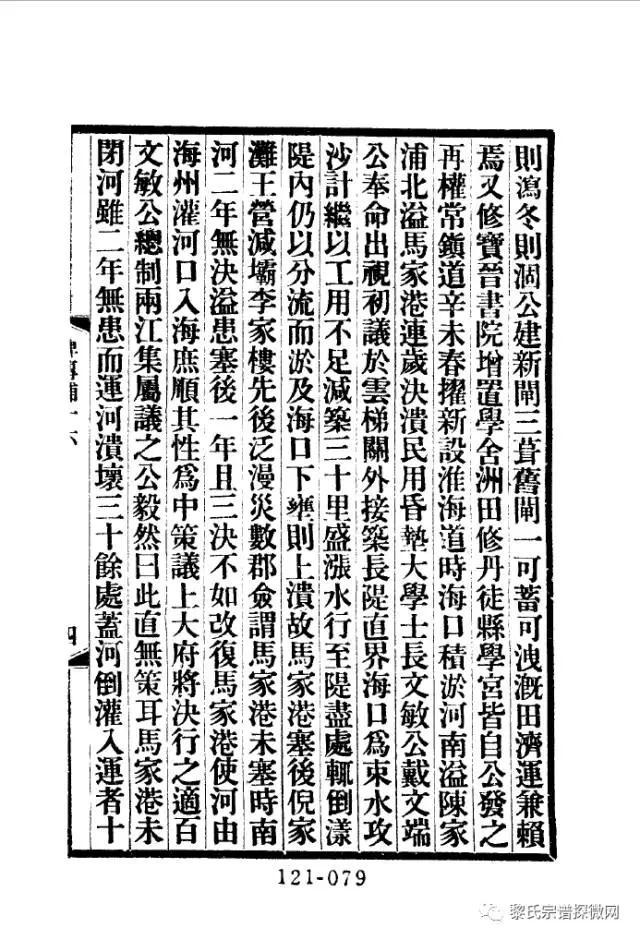 則瀉冬則涸公建新閘三葺舊閘一可蓄可洩漑田濟運兼賴
焉又修寶晉書院增置學舍洲田修丹徒縣學宮皆自公發之
再權常鎭道辛未春擢新設淮海道時海口積淤河南溢陳家
浦北溢馬家港連歲決潰民用昏墊大學士長文敏公戴文端
公奉命出視初議於雲梯關外接築長隄直界海口爲束水攻
沙計繼以工用不足減築三十里盛漲水行至隄盡處輒倒漾
隄內仍以分流而淤及海口下壅則上潰故馬家港塞後倪家
灘王營減壩李家樓先後泛漫災數郡僉謂馬家港未塞時南
河二年無決溢患塞後一年且三決不如改復馬家港使河由
海州灌河口入海庶順其性爲中策議上大府將決行之適百
文敏公總制兩江集屬議之公毅然曰此直無策耳馬家港未
閉河雖二年無患而運河潰壞三十餘處蓋河倒灌入運者十
碑傳補十六
四
121-079
黎氏宗谱探微网